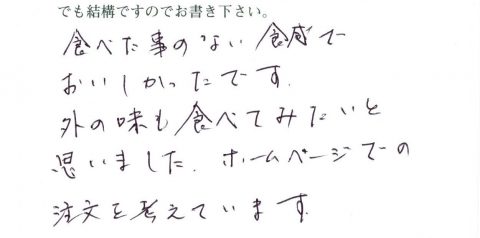 でも結構ですのでお書き下さい。
食べた事のない食感で
おいしかったです。
外の味も食べてみたいと
思いました。ホームページでの
注文を考えています。